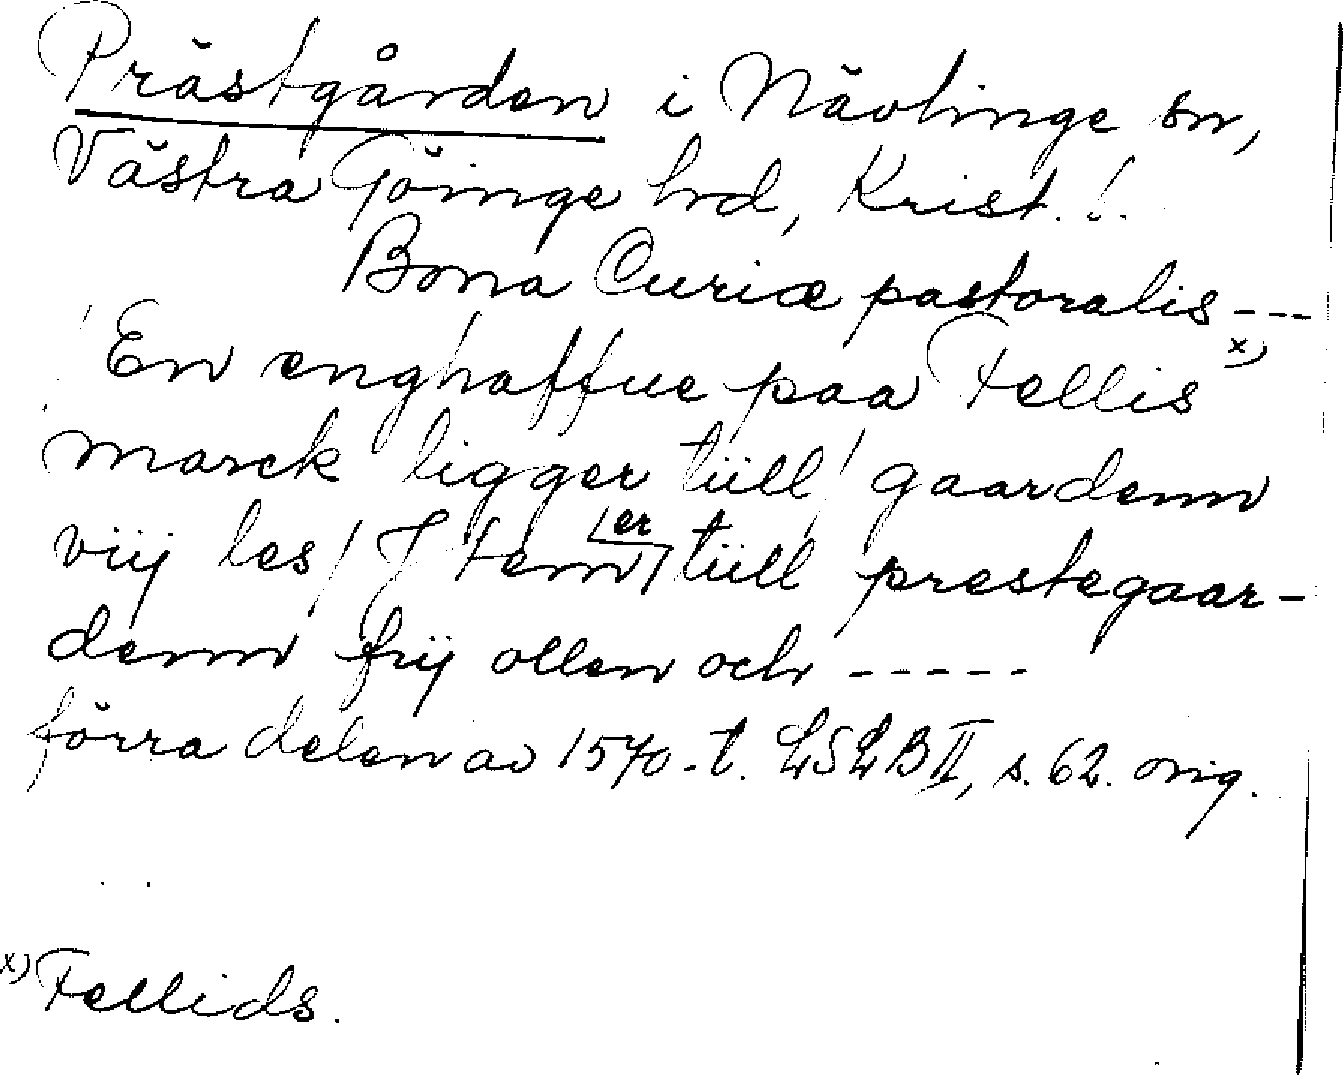 Prästgården i Nävlinge sn,
Västra Göinge hd, Krist. l.
Bona Curiæ pastoralis ---
En enghaffue paa Fellis x)
marck ligger tüll / gaardenn
viij les / Jtem er tüll prestegaar-
denn frij ollen och -----
förra delen av 1570-t. LSLB II, s. 62. orig.
x) Fellids.